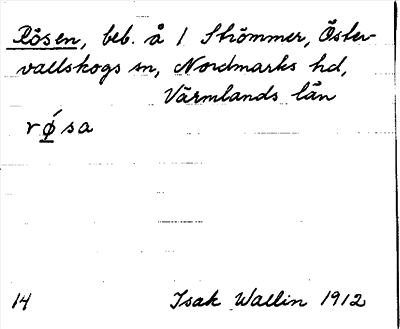 Rösen, beb. å 1 Strömmer, Öster-
vallskogs sn, Nordmarks hd,
Värmlands län
rǿsa
14 Isak Wallin 1912